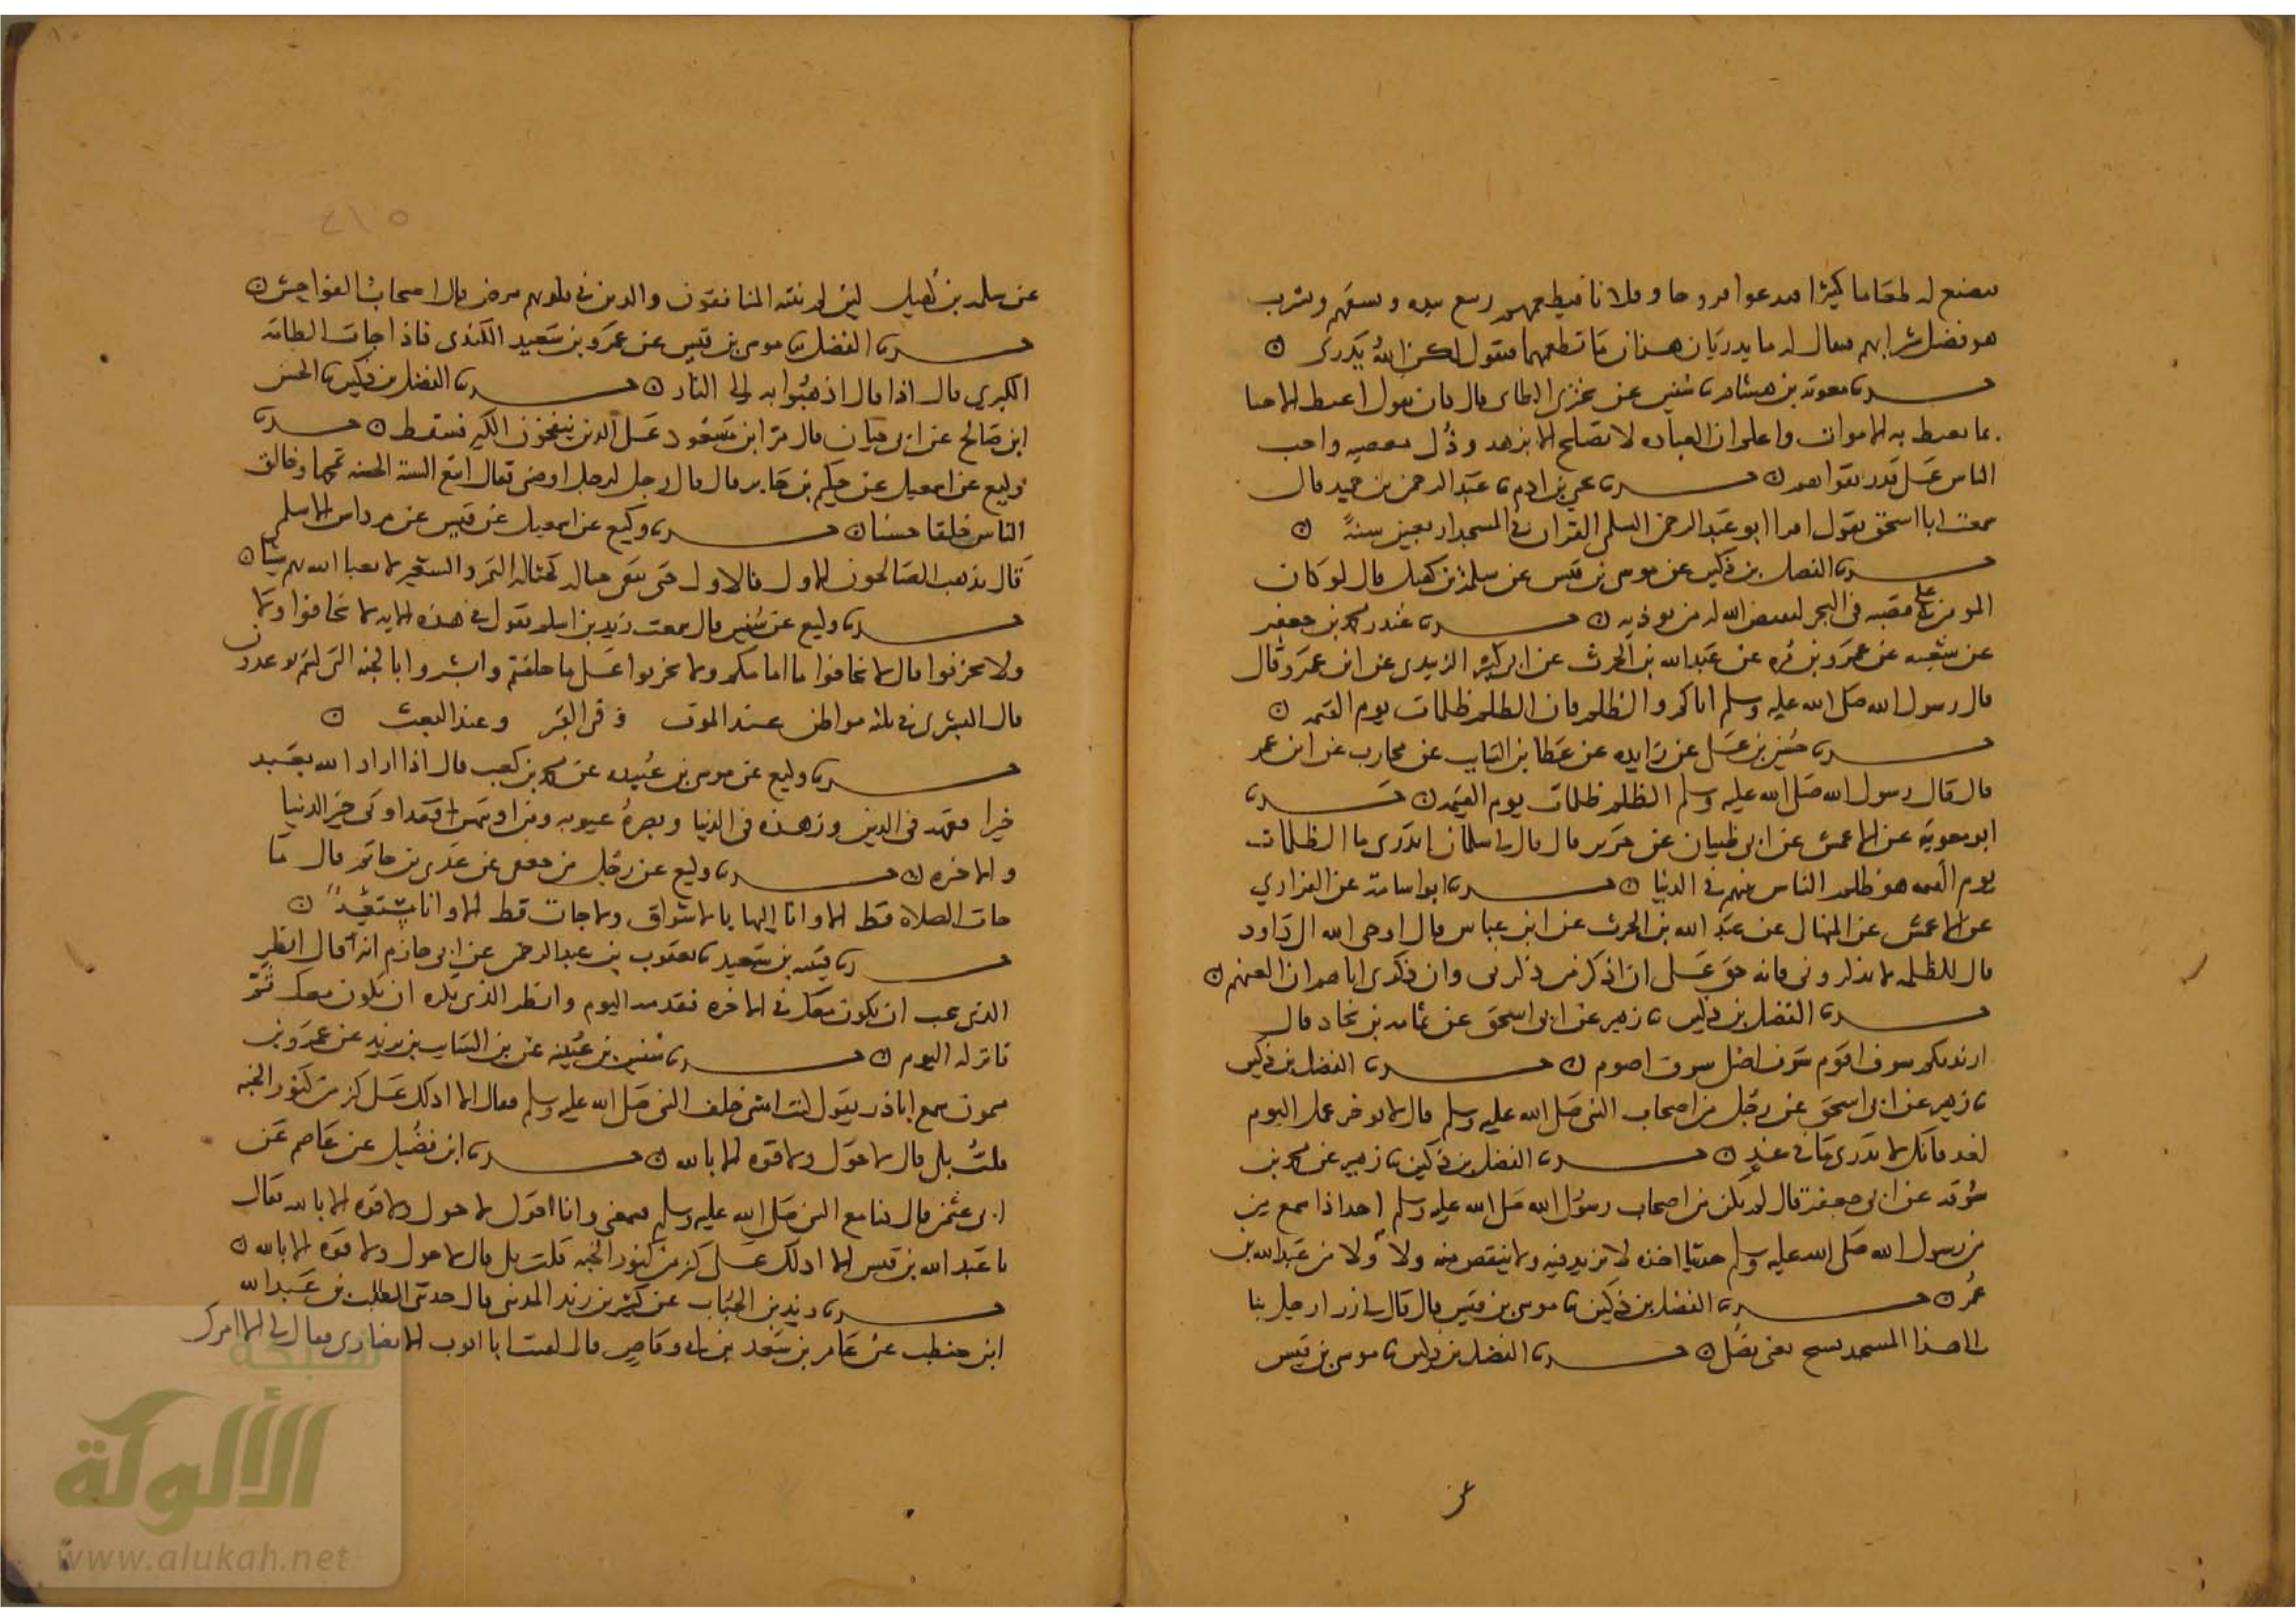 فيصنع له طعاما كثيرا فيدعوا فروحا وفلانا فيطعمهم ربيع بيده ويسقيهم ويشرب
هو فضل شرابهم فيقال له ما يدريان هذان ما تطعمهما فيقول لكن الله يدري ○
حدثنا معوية بن هشام نا سفين عن الطائي قال كان يقول اغبط الاحيا
بما يغبط به الاموات واعلم ان العبادة لا تصلح الا بزهد وذل عند معصيه واحب
الناس على قدر تقواهم ○ حدثنا يحيى بن ادم نا عبد الرحمن بن حميد قال
سمعت ابا اسحق يقول اقرا ابو عبد الرحمن السلمي القران في المسجد اربعين سنة ○
حدثنا الفضل بن دكين عن موسى بن قيس عن سلمة بن كهيل قال لو كان
المومن على قصبه في البحر لقيض الله له من يوذيه ○ حدثنا غندر محمد بن جعفر
عن شعبه عن عمرو بن مره عن عبد الله بن الحرث عن ابي كثير الزبيدي عن ابن عمرو قال
قال رسول الله صلى الله عليه وسلم اياكم والظلم فان الظلم ظلمات يوم القيمه ○
حدثنا حسين بن علي عن زايده عن عطا بن السايب عن محارب عن ابن عمر
قال قال رسول الله صلى الله عليه وسلم الظلم ظلمات يوم القيمه ○ حدثنا
ابو معوية عن الاعمش عن ابي ظبيان عن جرير قال قال لي سلمان اتدري ما الظلمات
يوم القيمه هو ظلم الناس بينهم في الدنيا ○ حدثنا ابو اسامة عن الفزاري
عن الاعمش عن المنهال عن عبد الله بن الحرث عن ابن عباس قال اوحى الله الى داود
قال للظلمه لا يذكروني فانه حق علي ان اذكر من ذكرني وان ذكري اياهم ان العنهم ○
حدثنا الفضل بن دكين نا زهير عن ابي اسحق عن ثمامه بن بجاد قال
انذرتكم سوف اقوم سوف اصلي سوف اصوم ○ حدثنا الفضل بن دكين
نا زهير عن ابي اسحق عن رجل من اصحاب النبي صلى الله عليه وسلم قال لا توخر عمل اليوم
لغد فانك لا تدري ما في غد ○ حدثنا الفضل بن دكين نا زهير عن محمد بن
سوقه عن ابي جعفر قال لم يكن من اصحاب رسول الله صلى الله عليه وسلم احد اذا سمع
من رسول الله صلى الله عليه وسلم حديثا اخذه لا يزيد فيه ولا ينقص منه ولا ولا من عبد الله بن
عمر ○ حدثنا الفضل بن دكين نا موسى بن قيس قال قال لي زر ارحل بنا
الى هذا المسجد نسبح يعني نصلي ○ حدثنا الفضل بن دكين نا موسى بن قيس
عن
عن سلمه بن كهيل لين لم ينته المنافقون والذين في قلوبهم مرض قال اصحاب الفواحش ○
حدثنا الفضل نا موسى بن قيس عن عمرو بن سعيد الكندي فاذا جات الطامه
الكبرى قال اذا قال اذهبوا به الى النار ○ حدثنا الفضل بن دكين نا الحسن
ابن صالح عن ابي حيان قال مر ابن مسعود على الذين ينفخون الكير فسقط ○ حدثنا
وكيع عن اسمعيل عن حكيم بن جابر قال قال رجل لرجل اوصني فقال اتبع السيئة الحسنه تمحها وخالق
الناس خلقا حسنا ○ حدثنا وكيع عن اسمعيل عن قيس عن مرداس الاسلمي
قال يذهب الصالحون الاول فالاول حتى تبقى حثاله كحثاله التمر والشعير لا يعبا الله بهم شيا ○
حدثنا وكيع عن سفين قال سمعت زيد بن اسلم يقول في هذه الايه لا تخافوا ولا
ولا تحزنوا قال لا تخافوا ما امامكم ولا تحزنوا على ما خلفتم وابشروا بالجنه التي كنتم توعدون
قال البشرى في ثلثه مواطن عند الموت وفي القبر وعند البعث ○
حدثنا وكيع عن موسى بن عبيده عن محمد بن كعب قال اذا اراد الله بعبد
خيرا فقهه في الدين وزهده في الدنيا وبصره عيوبه ومن اوتيهن فقد اوتي خير الدنيا
والاخره ○ حدثنا وكيع عن رجل من جعفي عن عدي بن حاتم قال ما
جات الصلاه قط الا وانا اليها بالاشواق ولا جات قط الا وانا مستعد ○
حدثنا قتيبه بن سعيد نا يعقوب بن عبد الرحمن عن ابي حازم انه قال انظر
الذي تحب ان يكون معك في الاخره فقدمه اليوم وانظر الذي تكره ان يكون معك ثم
فاتركه اليوم ○ حدثنا سفين بن عيينه عن بن السايب بن يزيد عن عمرو بن
ميمون سمع اباذر يقول كنت امشي خلف النبي صلى الله عليه وسلم فقال الا ادلك على كنز من كنوز الجنه
قلت بلى قال لا حول ولا قوه الا بالله ○ حدثنا ابن فضيل عن عاصم عن
ابي عثمن قال كنا مع النبي صلى الله عليه وسلم فسمعني وانا اقول لا حول ولا قوه الا بالله فقال
يا عبد الله بن قيس الا ادلك على كنز من كنوز الجنه قلت بلى قال لا حول ولا قوه الا بالله ○
حدثنا زيد بن الحباب عن كثير بن زيد المدني قال حدثني المطلب بن عبد الله
ابن حنطب عن عامر بن سعد بن ابي وقاص قال لقيت ابا ايوب الانصاري فقال لي الا امرك
شبكة
الألوكة
www.alukah.net